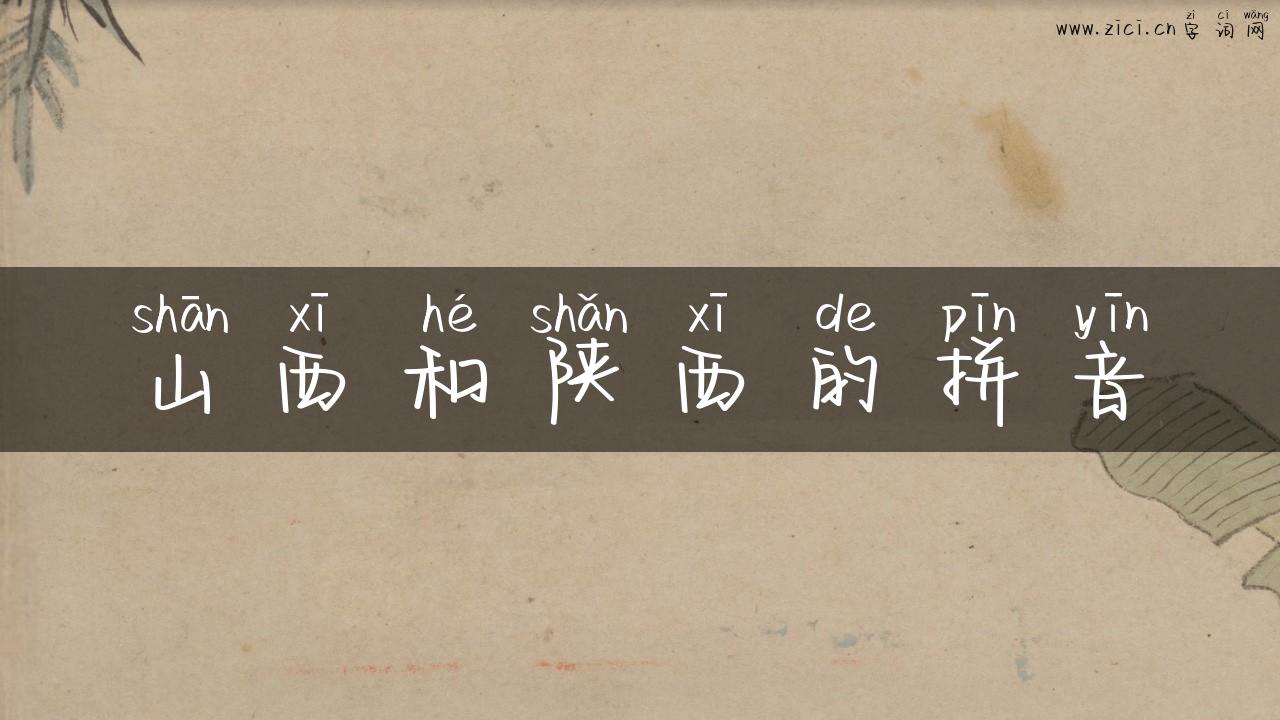 zì cí wǎng
www.zici.cn 字 词 网
shān xī hé shǎn xī de pīn yīn
山 西 和 陕 西 的 拼 音